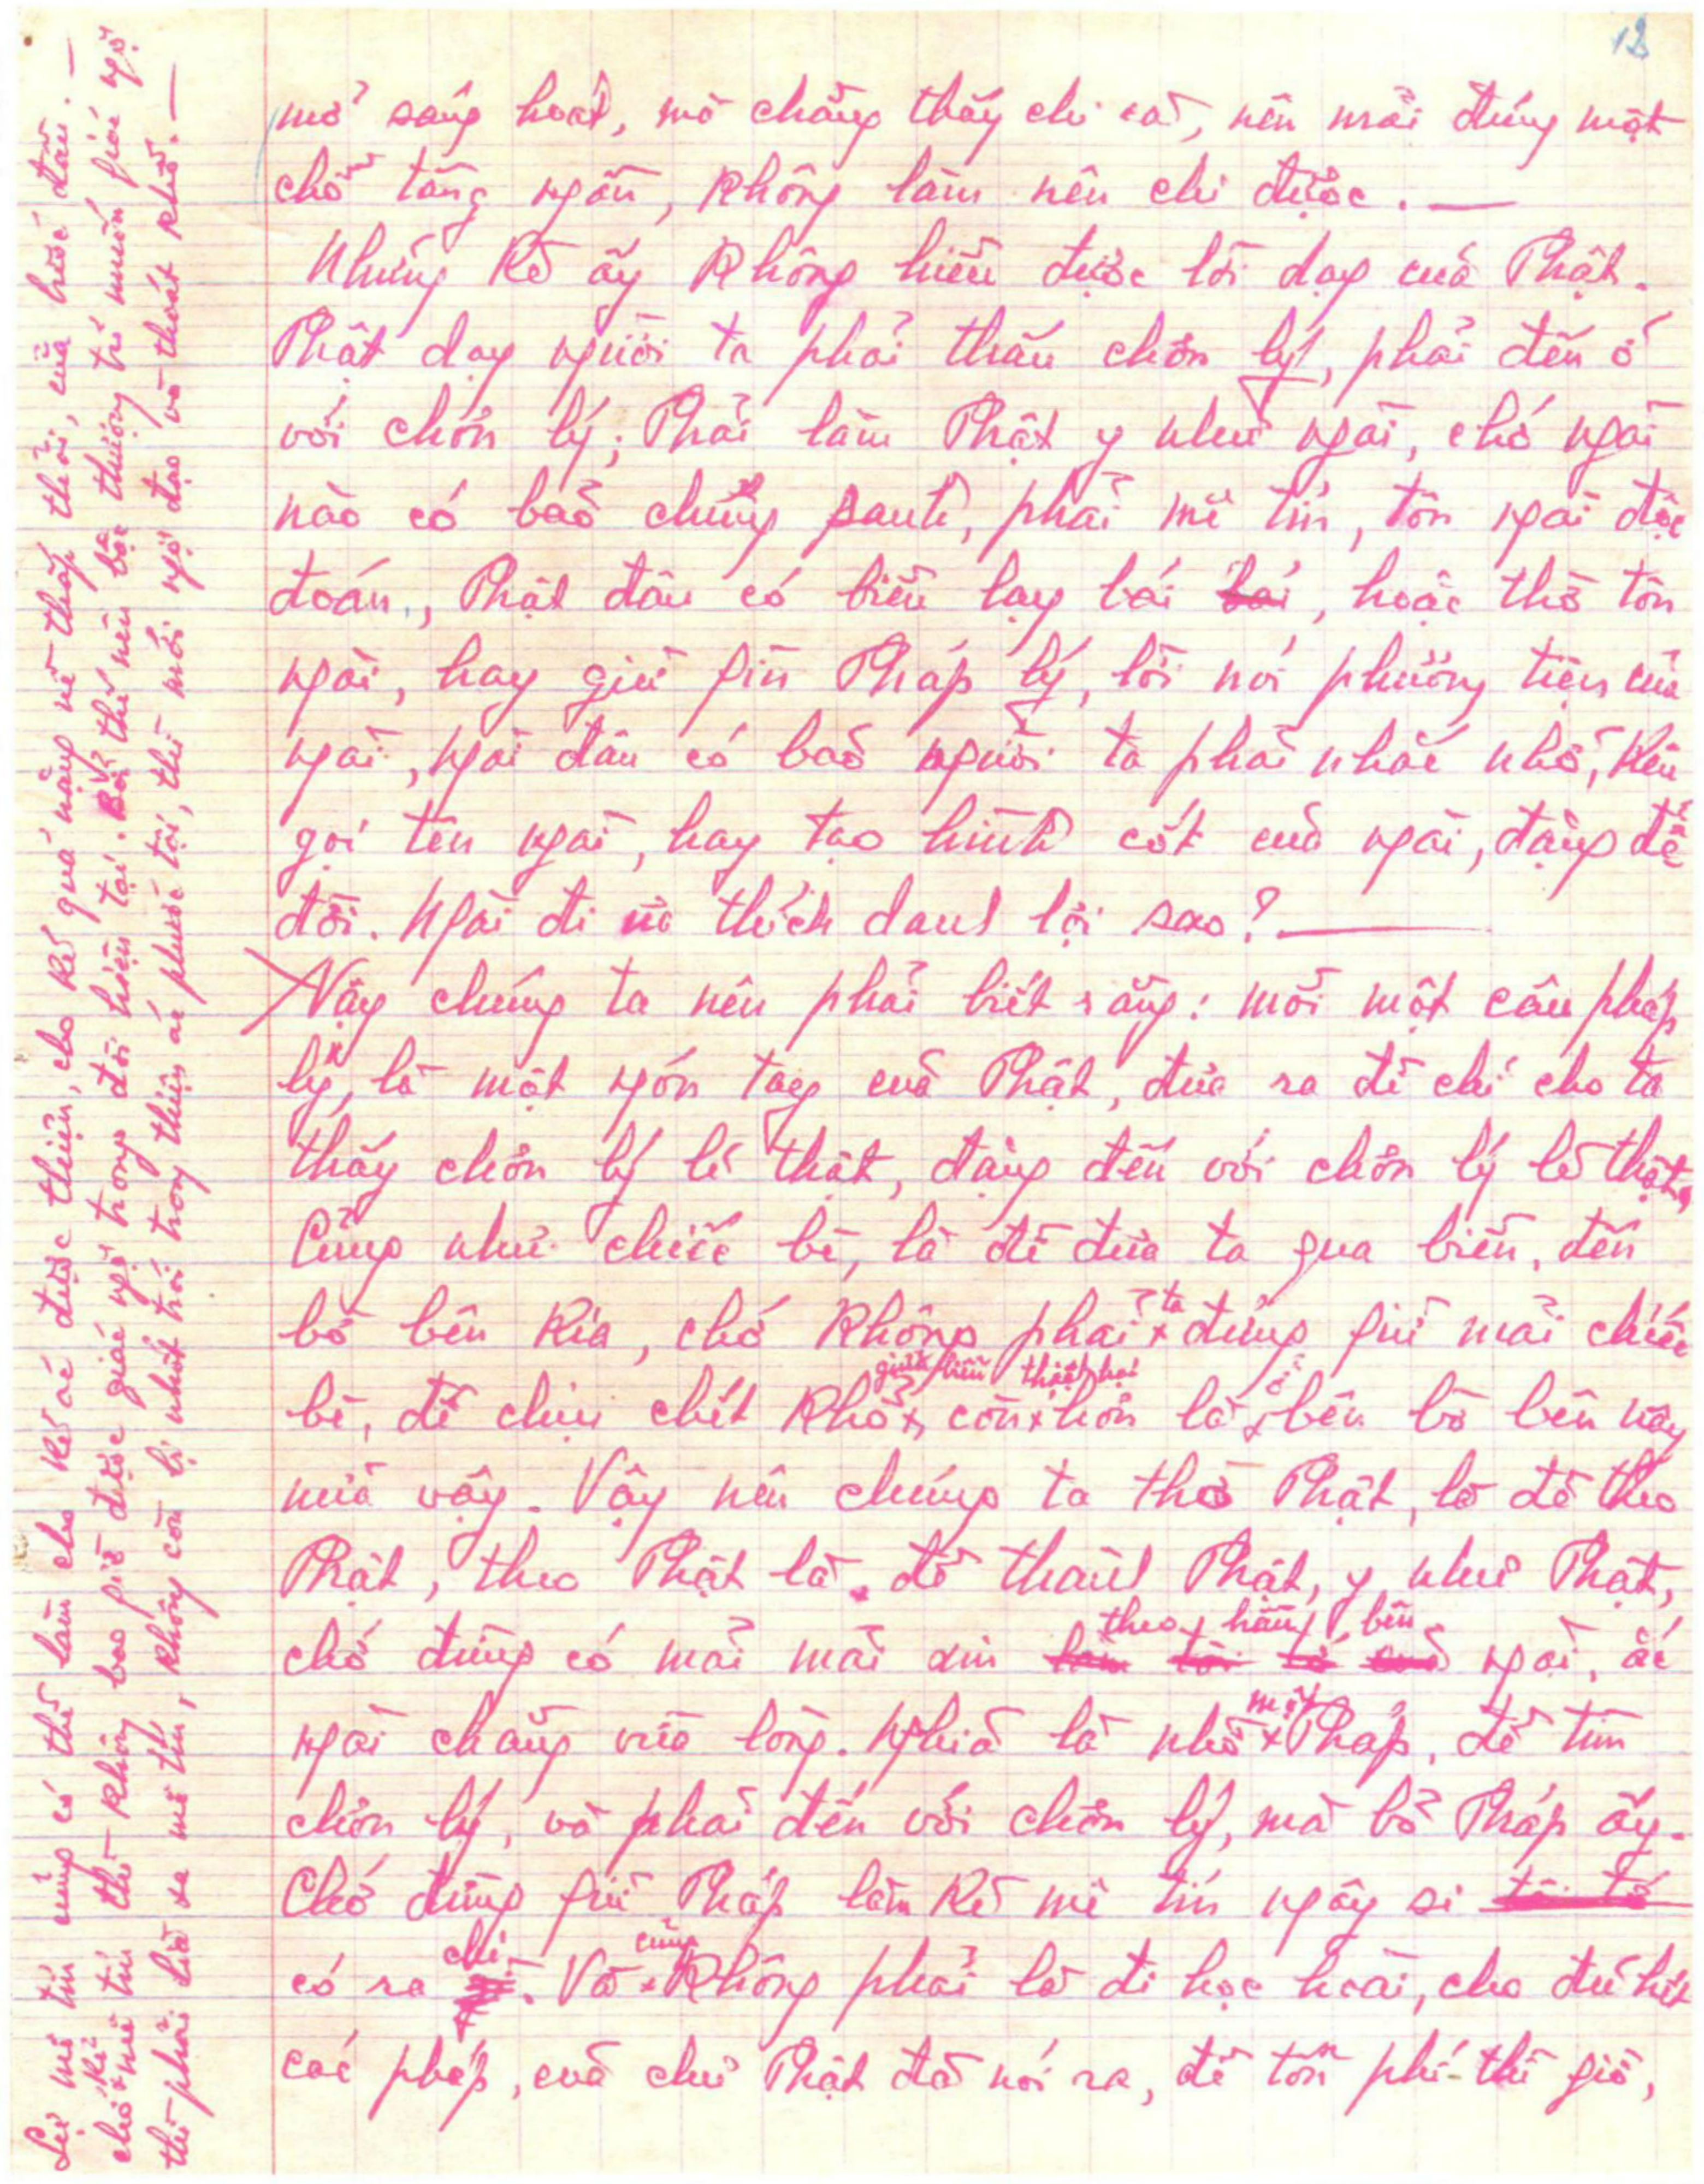 12
mở sáng hoát, mà chẳng thấy chi cả, nên mãi đứng một
chỗ tầng ngần, không làm nên chi được. —
Những kẻ ấy không hiểu được lời dạy của Phật.
Phật dạy người ta phải thấu chơn lý, phải đến ở
với chơn lý; Phải làm Phật y như ngài, chớ ngài
nào có bảo chúng sanh, phải mê tín, tôn ngài độc
đoán, Phật đâu có biểu lạy bái bái, hoặc thờ tôn
ngài, hay giữ gìn Pháp lý, lời nói phương tiện của
ngài, ngài đâu có bảo người ta phải nhắc nhở, kêu
gọi tên ngài, hay tạo hình cốt của ngài, đặng để
đời. Ngài đi ưa thích danh lợi sao? —
Vậy chúng ta nên phải biết rằng: mỗi một câu pháp
lý, là một ngón tay của Phật, đưa ra để chỉ cho ta
thấy chơn lý lẽ thật, đặng đến với chơn lý lẽ thật,
Cũng như chiếc bè, là để đưa ta qua biển, đến
bờ bên kia, chớ không phải ta đứng giữ mãi chiếc
bè, để chịu chết khổ giữa biển, còn thiệt hại hơn là ở bên bờ bên nây
nữa vậy. Vậy nên chúng ta thờ Phật, là để theo
Phật, theo Phật là để thành Phật, y như Phật,
chớ đừng có mãi mãi xin theo hầu bên ngài, ắc
ngài chẳng vừa lòng. Nghĩa là nhờ một Pháp, để tìm
chơn lý, và phải đến với chơn lý, mà bỏ Pháp ấy.
Chớ đừng giữ Pháp làm kẻ mê tín ngây si
có ra chi. Và cũng không phải là đi học hoài, cho đủ hết
các pháp, của chư Phật đã nói ra, để tốn phí thì giờ,
Sự mê tín cũng có thể làm cho kẻ ác được thiện, cho kẻ quá nặng nề thấp thỏi, của bước đầu. —
chớ kẻ mê tín thì không bao giờ được giác ngộ trong đời hiện tại. Bởi thế nên bậc thượng trí muốn giác ngộ
thì phải lìa xa mê tín, không còn bị nhốt trói trong thiện ác phước tội, thì mới ngộ đạo và thoát khổ. —